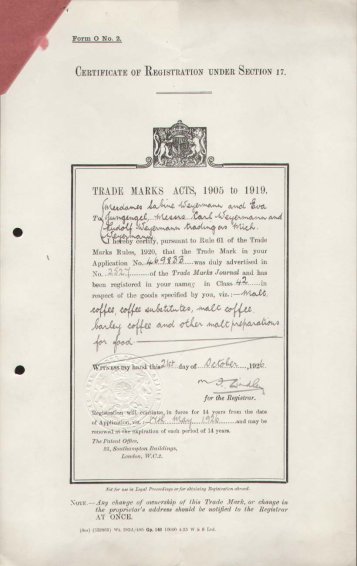 Form O No. 2.
CERTIFICATE OF REGISTRATION UNDER SECTION 17.
TRADE MARKS ACTS, 1905 to 1919.
Mesdames Sabine Weyermann and Eva
To Jungengel, Messrs. Carl Weyermann and
Rudolf Weyermann trading as Mich.
Weyermann
I hereby certify, pursuant to Rule 61 of the Trade
Marks Rules, 1920, that the Trade Mark in your
Application No. 469838 was duly advertised in
No. 2527 of the Trade Marks Journal and has
been registered in your names in Class 42 in
respect of the goods specified by you, viz.:—Malt,
coffee, coffee substitutes, malt coffee,
barley coffee and other malt preparations
for food
WITNESS my hand this 21st day of October, 1926.
for the Registrar.
Registration will continue in force for 14 years from the date
of Application, viz., May 1926 and may be
renewed at the expiration of each period of 14 years.
The Patent Office,
25, Southampton Buildings,
London, W.C.2.
Not for use in Legal Proceedings or for obtaining Registration abroad.
NOTE.—Any change of ownership of this Trade Mark, or change in
the proprietor's address should be notified to the Registrar
AT ONCE.